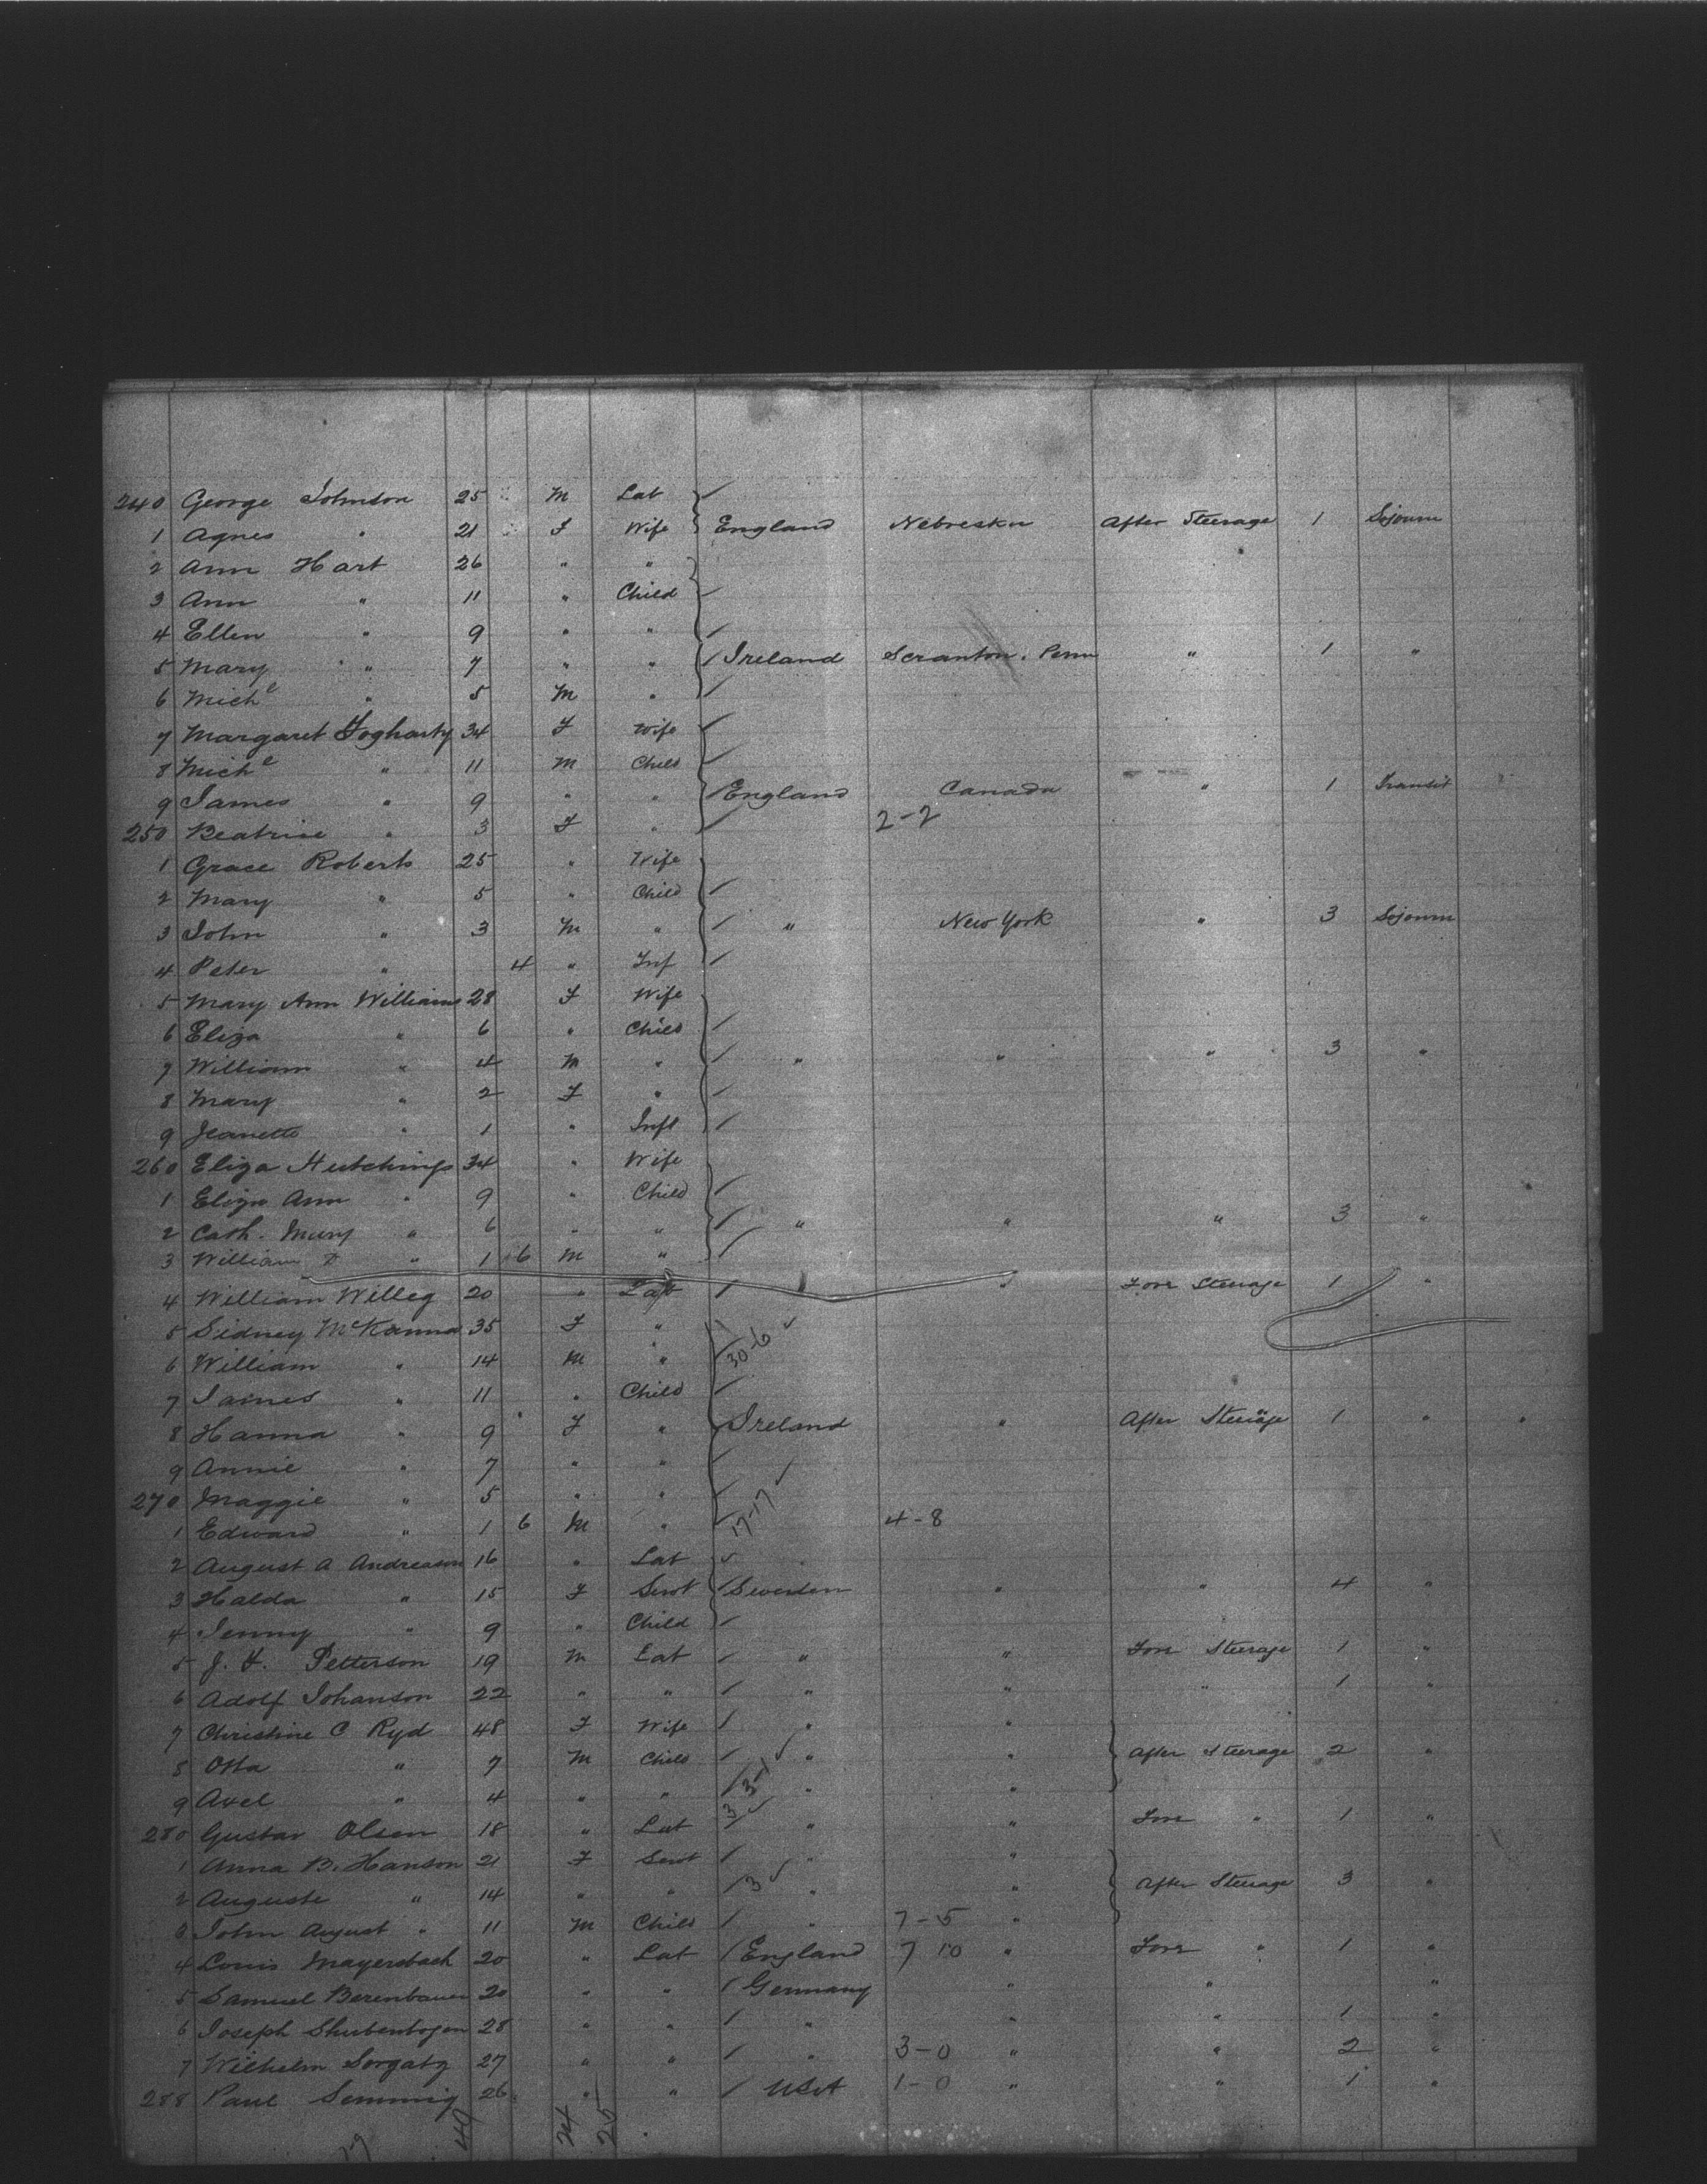 240 George Johnson 25 M Lab
1 Agnes " 21 F Wife England Nebreska After Steerage 1 Sojourn
2 Ann Hart 26 " "
3 Ann " 11 " Child
4 Ellen " 9 " "
5 Mary " 7 " " Ireland Scranton. Penn " 1 "
6 Michl " 5 M "
7 Margaret Fogharty 34 F Wife
8 Michl " 11 M Child
9 James " 9 " " England Canada " 1 Transit
250 Beatrice " 3 F " 2-2
1 Grace Roberts 25 " Wife
2 Mary " 5 " Child
3 John " 3 M " " New York " 3 Sojourn
4 Peter " 4 " Inf
5 Mary Ann Williams 28 F Wife
6 Eliza " 6 " Child
7 William " 4 M " " " " 3 "
8 Mary " 2 F "
9 Jeanette " 1 " Inft
260 Eliza Hutchings 34 " Wife
1 Eliza Ann " 9 " Child
2 Cath. Mary " 6 " " " " " 3 "
3 William D " 1 6 M "
4 William Willeg 20 " Lab " Fore Steerage 1 "
5 Sidney McKanna 35 F " 30-6
6 William " 14 M "
7 James " 11 " Child
8 Hanna " 9 F " Ireland " After Steerage 1 "
9 Annie " 7 " "
270 Maggie " 5 " "
1 Edward " 1 6 M " 17-17 4-8
2 August A Andreason 16 " Lab
3 Halda " 15 F Servt Sweden " " 4 "
4 Jenny " 9 " Child
5 J. F. Petterson 19 M Lab " " Fore Steerage 1 "
6 Adolf Johanson 22 " " " " " 1 "
7 Christine C Ryd 48 F Wife " "
8 Otta " 7 M Child " " After Steerage 2 "
9 Axel " 4 " " 3-1 " "
280 Gustav Olsen 18 " Lab 3 " " Fore " 1 "
1 Anna B. Hanson 21 F Servt " "
2 Auguste " 14 " " 3 " " After Steerage 3 "
3 John August " 11 M Child " 7-5 "
4 Louis Mayersbach 20 " Lab England 7 10 " Fore " 1 "
5 Samuel Berenbauer 20 " " Germany " " "
6 Joseph Shubenbogen 28 " " " " " 1 "
7 Wilhelm Sorgatz 27 " " " 3-0 " " 2 "
288 Paul Semmig 26 " " USA 1-0 " " 1 "
49 24 25